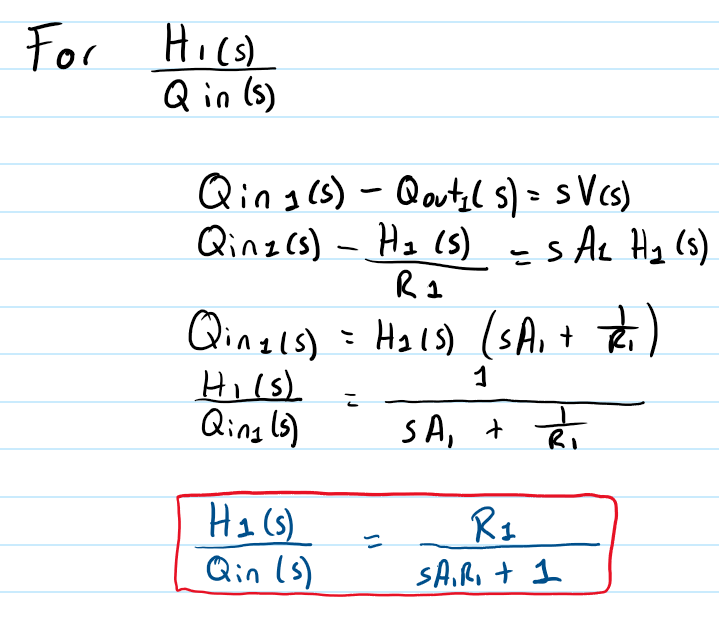 For H1(s) / Qin(s)
Qin1(s) - Qout1(s) = sV(s)
Qin1(s) - H1(s) / R1 = sA1 H1(s)
Qin1(s) = H1(s) (sA1 + 1/R1)
H1(s) / Qin1(s) = 1 / (sA1 + 1/R1)
H1(s) / Qin(s) = R1 / (sA1R1 + 1)